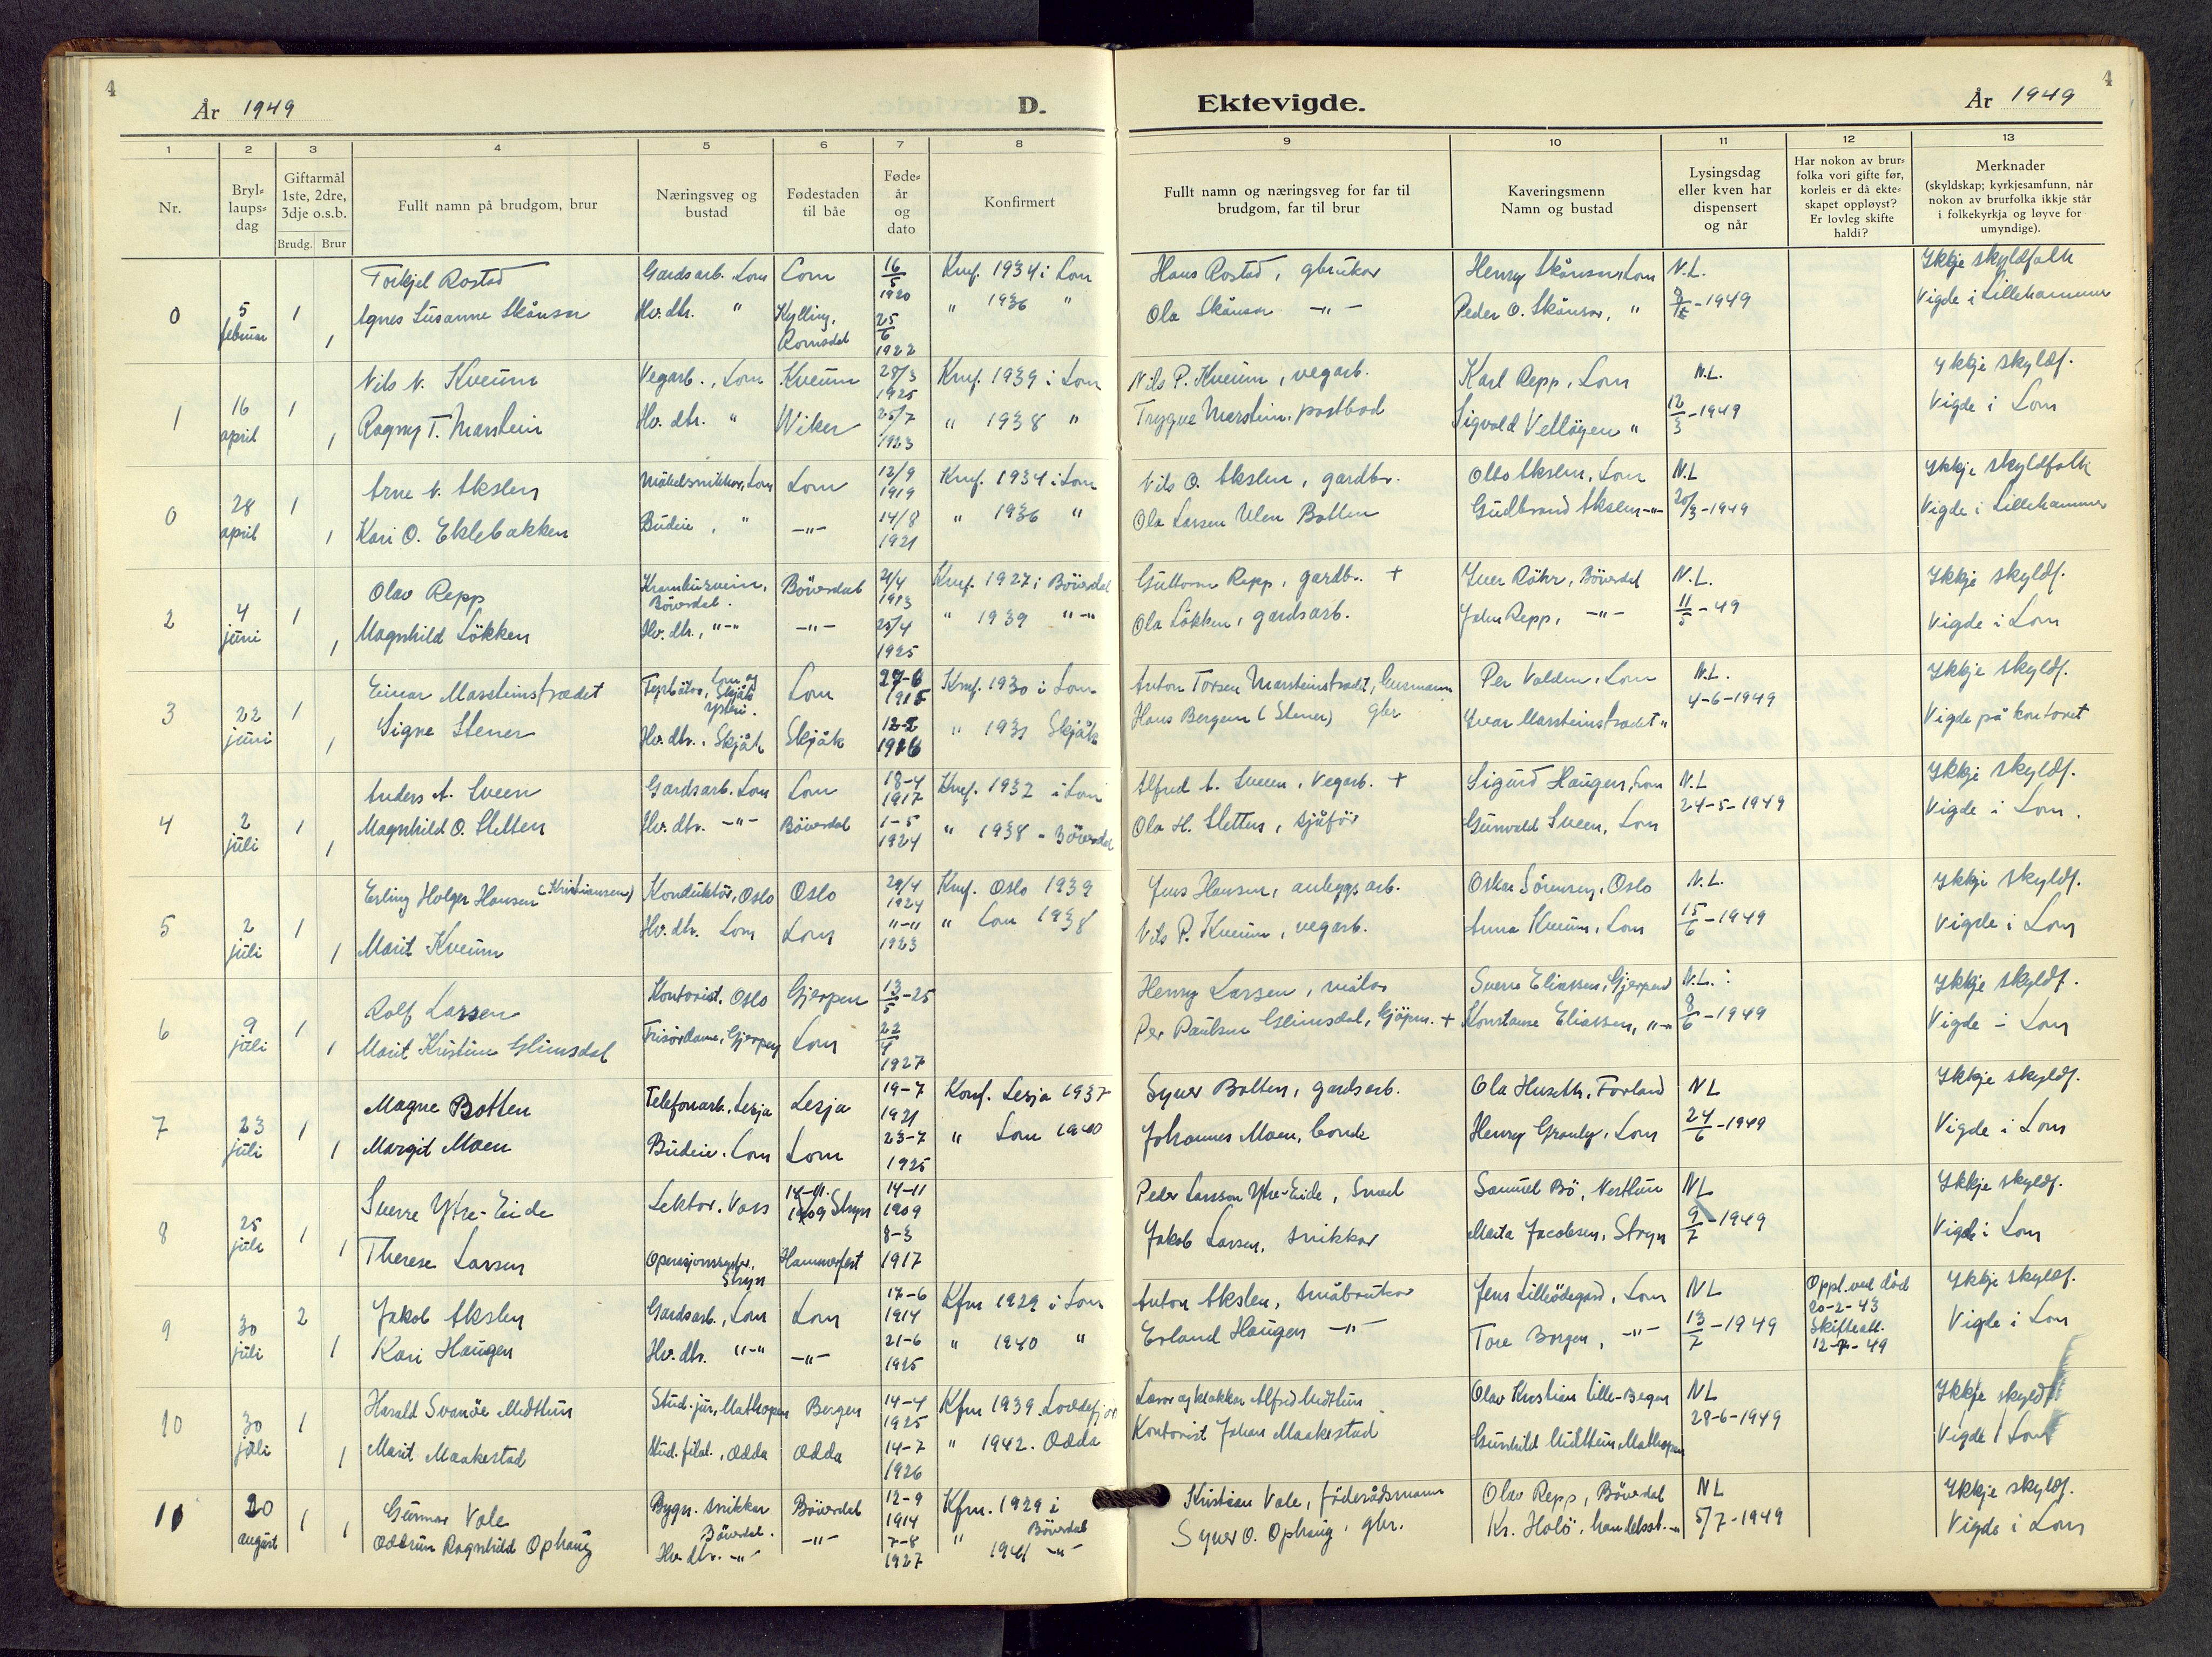 4
År 1949
D.
Ektevigde.
År 1949
4
1 2 3 4 5 6 7 8 9 10 11 12 13
Nr.
Bryl-
laups-
dag
Giftarmål
1ste, 2dre,
3dje o.s.b.
Brudg. Brur
Fullt namn på brudgom, brur
Næringsveg og
bustad
Fødestaden
til båe
Føde-
år
og
dato
Konfirmert
Fullt namn og næringsveg for far til
brudgom, far til brur
Kaveringsmenn
Namn og bustad
Lysingsdag
eller kven har
dispensert
og når
Har nokon av brur-
folka vori gifte før,
korleis er då ekte-
skapet oppløyst?
Er lovleg skifte
haldi?
Merknader
(skyldskap; kyrkjesamfunn, når
nokon av brurfolka ikkje står
i folkekyrkja og løyve for
umyndige).
0 5 februar 1 Torkjel Rostad Gardsarb. Lom Lom 16/5 1920 Knf. 1934 i Lom Hans Rostad, gbrukar Henry Skånsar, Lom N.L. Ikkje skyldfolk
1 Agnes Susanne Skånsar Hv. dtr. " Kylling, Romsdal 25/6 1922 " 1936 " Ola Skånsar -"- Peder O. Skånsar, " -1949 Vigde i Lillehammer
1 16 april 1 Nils N. Kveum Vegarb., Lom Kveum 28/3 1925 Knf. 1939 i Lom Nils P. Kveum, vegarb. Karl Repp, Lom N.L. Ikkje skyldf.
1 Ragny T. Marstein Hv. dtr. " Wiker 25/7 1923 " 1938 " Trygve Marstein, postbod Sigvald Vetløyen " 12/3 -1949 Vigde i Lom
0 28 april 1 Arne N. Akslen Møbelsnikkar, Lom Lom 12/9 1919 Knf. 1934 i Lom Nils O. Akslen, gardbr. Otto Akslen, Lom N.L Ikkje skyldfolk
1 Kari O. Eklebakken Budeie, " -"- 14/8 1921 " 1936 " Ola Larsen Ulen Botten Gudbrand Akslen -"- 20/3 -1949 Vigde i Lillehammer
2 4 juni 1 Olav Repp Bøverdal. Bøverdal 21/4 1913 Knf. 1927 i Bøverdal Guttorm Repp, gardbr. + Iver Röhr, Bøverdal N.L. Ikkje skyldf.
1 Magnhild Løkken Hv. dtr., "-" -"- 25/4 1925 " 1939 "-" Ola Løkken, gardsarb. John Repp, -"- 11/5 -49 Vigde i Lom
3 22 juni 1 Einar Marsteinstrædet Lom og Skjåk Ysteri. Lom 1915 Knf. 1930 i Lom Anton Torsen Marsteinstrædet, Per Valden, Lom N.L. Ikkje skyldf.
1 Signe Stener Hv. dtr., Skjåk Skjåk " 1931 Skjåk Hans Bergum (Stener) gbr Ivar Marsteinstrædet " 4-6-1949 Vigde på kontoret
4 2 juli 1 Anders A. Sveen Gardsarb. Lom Lom 18-4 1917 Knf. 1932 i Lom Alfred A. Sveen, Vegarb. + Sigurd Haugen, Lom N.L Ikkje skyldf.
1 Magnhild O. Sletten Hv. dtr. -"- Bøverdal 1-5 1924 " 1938 - Bøverdal Ola H. Sletten, sjåfør Gunvald Sveen, Lom 24-5-1949 Vigde i Lom.
5 2 juli 1 Erling Holger Hansen (Kristiansen) Konduktør, Oslo Oslo 29/4 1924 Knf. Oslo 1939 Jens Hansen, anleggsarb. Oskar Sørensen, Oslo N.L. Ikkje skyldf.
1 Marit Kveum Hv. dtr. Lom Lom "-" 1923 " Lom 1938 Nils P. Kveum, vegarb. Anna Kveum, Lom 15/6 -1949 Vigde i Lom
6 9 juli 1 Rolf Larsen Kontorist. Oslo Gjerpen 13/5 -25 Henry Larsen, målar Sverre Eliassen, Gjerpen N.L. Ikkje skyldf.
1 Marit Kristine Glimsdal Frisördame, Gjerpen Lom 22/4 1927 Per Paulsen Glimsdal, + Konstanse Eliassen, "-" 8/6 -1949 Vigde i Lom
7 23 juli 1 Magne Botten Telefonarb. Lesja Lesja 19-7 1921 Konf. Lesja 1937 Syver Botten, gardsarb. Ola Huseth, NL Ikkje skyldf.
1 Margit Moen Budeie. Lom Lom 23-7 1925 " Lom 1940 Johannes Moen, bonde Henry Granly, Lom 24/6 -1949 Vigde i Lom
8 25 juli 1 Sverre Ytre-Eide Lektor. Voss 14-11. 1909 Stryn 14-11 1909 Peder Larsson Ytre-Eide, Smed Samuel Bø, NL Ikkje skyldf.
1 Therese Larsen Operasjonssyster, Stryn Hammerfest 8-3 1917 Jakob Larsen, snikkar Marta Jacobsen, Stryn 9/7 -1949 Vigde i Lom
9 30 juli 2 Jakob Akslen Gardsarb., Lom Lom 17-6 1914 Kfm 1929 i Lom Anton Akslen, småbrukar Jens Lilleødegård, Lom NL Oppl. ved död 20-2-43 Ikkje skyldf.
1 Kari Haugen Hv. dtr. "-" -"- 21-6 1925 " 1940 " Erland Haugen -"- Tore Borgen, -"- 13/7 -1949 Skifteatt. 12-7-49 Vigde i Lom
10 30 juli 1 Harald Svanöe Midttun Stud. jur, Mathopen Bergen 14-4 1925 Kfm 1939. Loddefjord Lærar og klokkar Alfred Midttun Olav Kristian Lille-Bergen NL Ikkje skyldf.
1 Marit Maakestad Stud. filol., Odda Odda 14-7 1926 " 1942. Odda Kontorist Johan Maakestad Gunhild Midttun Mathopen 28-6-1949 Vigde i Lom
11 20 august 1 Gunnar Vole Bygn. snikkar Bøverdal. Bøverdal 12-9 1914 Kfm. 1929 i Bøverdal Kristian Vole, föderådsmann Olav Repp, Bøverdal NL Ikkje skyldf.
1 Oddrun Ragnhild Ophaug Hv. dtr. -"- -"- 7-8 1927 " 1941 -"- Syver O. Ophaug, gbr. Kr. Holö, handelsst. -"- 5/7-1949 Vigde i Lom